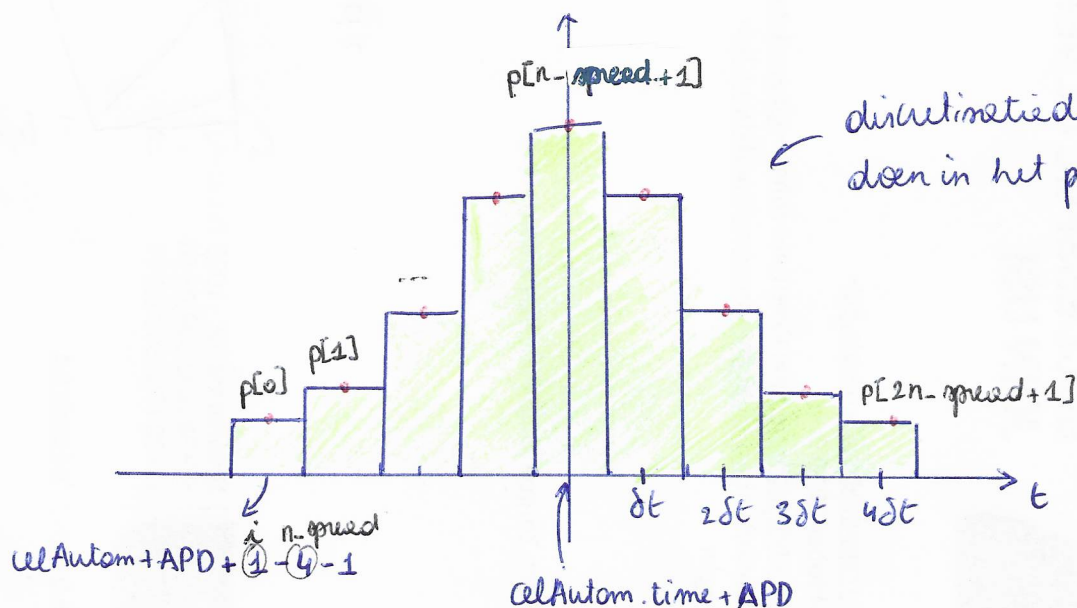 p[n_spread+1]
discretisatied
doen in het p
...
p[1]
p[0]
p[2n_spread+1]
δt
2δt
3δt
4δt
t
i n_spread
celAutom+APD+1-4-1
celAutom.time+APD